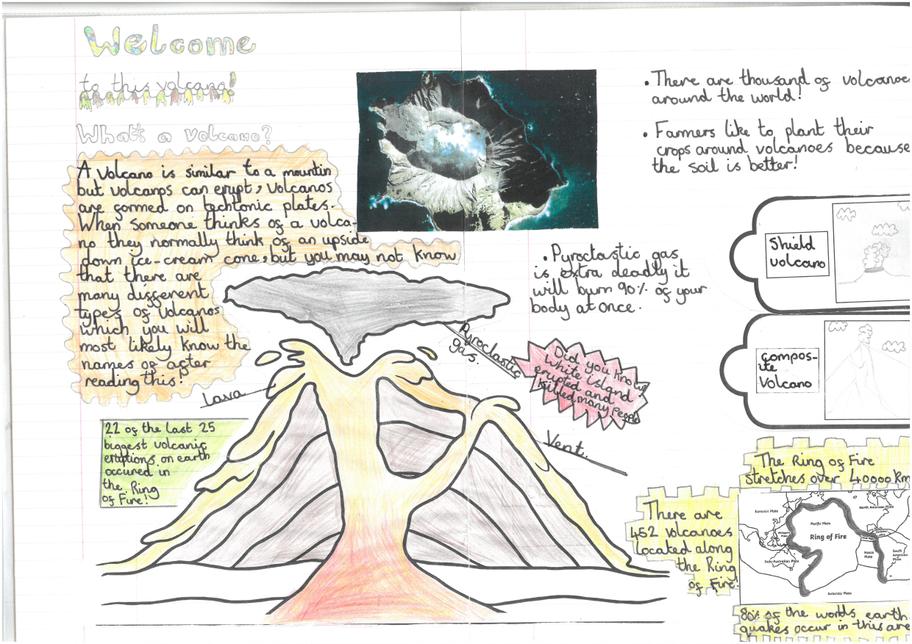 Welcome
to this volcano!
What's a volcano?
A Volcano is similar to a mountin
but volcanos can erupt, volcanos
are formed on techtonic plates.
When someone thinks of a volca-
no they normally think of an upside
down ice-cream cone, but you may not know
that there are
many different
types of volcanos
which you will
most likely know the
names of after
reading this!
Lava
22 of the last 25
biggest volcanic
eruptions, on earth
occured in
the Ring
of Fire!
• Pyroclastic gas
is extra deadly it
will burn 90% of your
body at once.
Pyroclastic
gas.
Did you know
white island
erupted and
killed many people
Vent.
• There are thousand of volcanoe
around the world!
• Farmers like to plant their
crops around volcanoes because
the soil is better!
Shield
volcano
Compos-
ite
Volcano
The Ring of Fire
stretches over 40000km
There are
452 volcanoes
located along
the Ring
of Fire!
Eurasian Plate
Pacific Plate
Ring of Fire
Indo-Australian Plate
Nazca
Plate
South
American
Plate
Antarctic Plate
80% of the worlds earth
quakes occur in this are